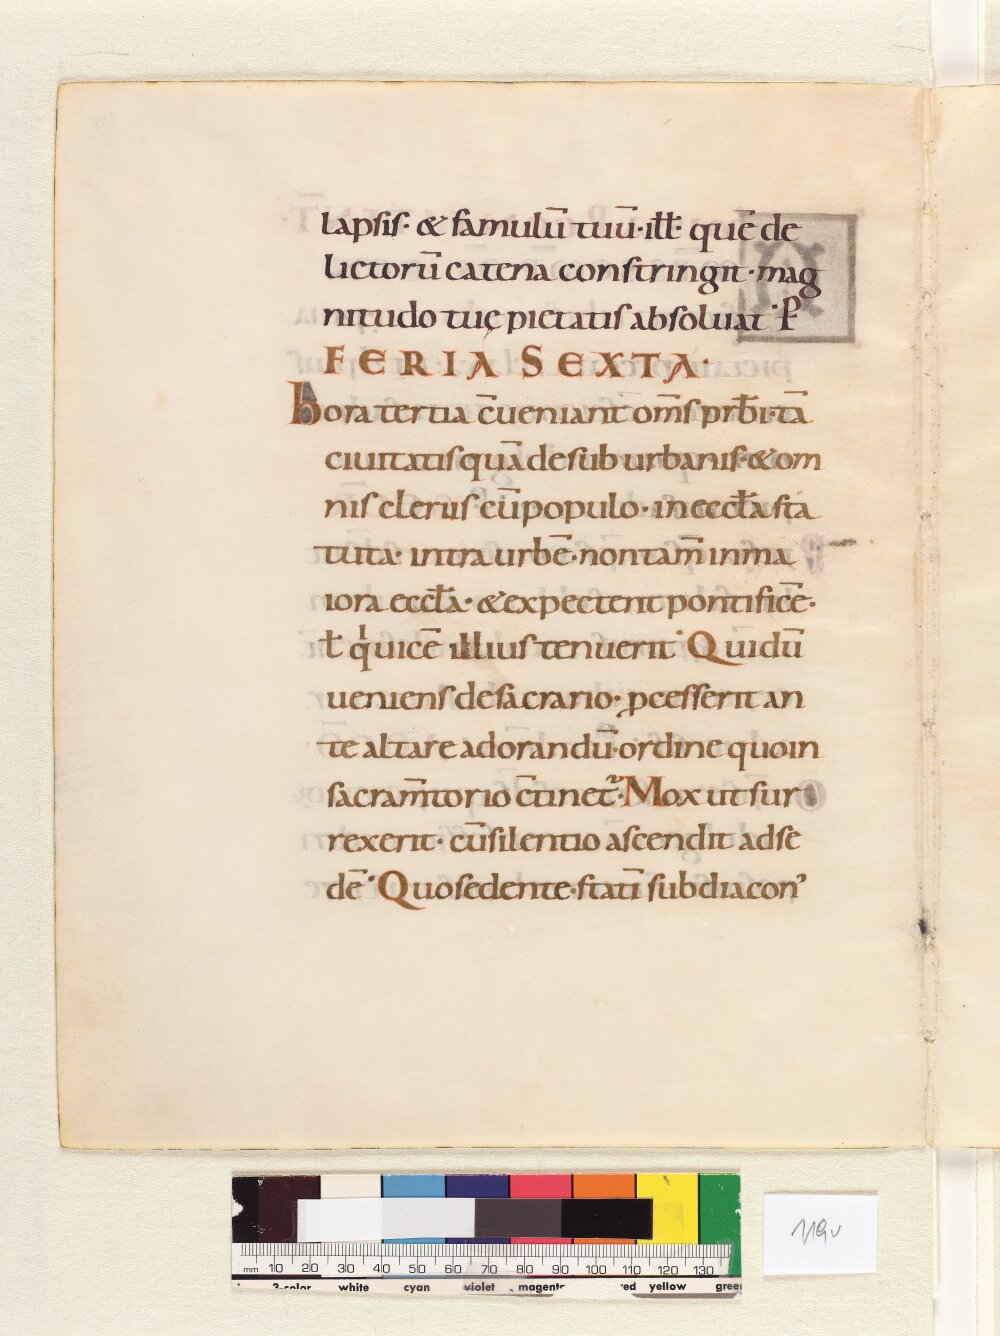 lapsis· & famulū tuū· ill̄· quē de
lictorū catena constringit· mag
nitudo tuę pietatis absoluat· P̄
FERIA SEXTA·
hora tertia c̄ueniant om̄s prb̄i· tā
ciuitatis quā de suburbanis· & om
nis clerus· cū populo· in eccl̄a sta
tuta· intra urbē· non tam̄ in ma
iora eccl̄a· & expectent pontificē·
ł qͥ uicē illius tenuerit· Qui dū
ueniens de sacrario· ꝓcesserit an
te altare adorandū· ordine quo in
sacram̄torio c̄tinet᷑· Mox ut sur
rexerit· cū silentio ascendit ad se
dē· Quo sedente· statī subdiacon᾽
mm 10 20 30 40 50 60 70 80 90 100 110 120 130
3-color white cyan violet magenta red yellow green
119v